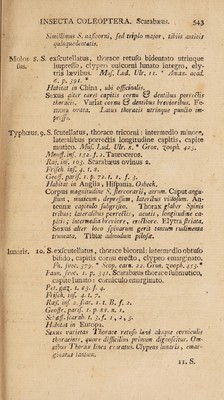 INSECTA COLEOPTERA. Scarabæus. 543
Simillimus S. nasicorni, sed triplo major, tibiis anticis
quinquedentatis.
Molos- 8. S. exscutellatus, thorace retuso bidentato utrinque
sus. impresso, clypeo unicorni lunato integro, ely-
tris lævibus. Mus. Lud. Ulr. 11. * Amœn. acad.
6. p. 391. *
Habitat in China, ubi officinalis.
Sexus alter caret capitis cornu & dentibus porrectis
thoracis. Variat cornu & dentibus brevioribus. Fe-
mora ovata. Latus thoracis utrinque puncto im-
presso.
Typhœus. 9. S. scutellatus, thorace tricorni: intermedio minore,
lateralibus porrectis longitudine capitis, capite
mutico. Mus. Lud. Ulr. 8. * Gron. zooph. 423.
Mouff. inf. 152. f. 2. Tauroceros.
Raj. inf. 103. Scarabæus ovinus 2.
Frisch. inf. 4. t. 8.
Geoff. parif. 1. p. 72. t. 1. f. 3.
Habitat in Anglia, Hispania. Osbeck.
Corpus magnitudine S. stercorarii, atrum. Caput angu-
stum, muticum, depressum, lateribus villosum. An-
tennæ capitulo subgriseo. Thorax glaber Spinis
tribus: lateralibus porrectis, acutis, longitudine ca-
pitis; intermedia breviore, erectiore. Elytra striata.
Sexus alter loco spinarum gerit tantum rudimenta
truncata. Tibiæ admodum pilosæ.
lunaris. 10. S. exscutellatus, thorace bicorni: intermedio obtuso
bifido, capitis cornu erecto, clypeo emarginato.
Fn. svec. 379. * Scop. carn. 22. Gron. zooph. 453.
Faun. svec. 1. p. 341. Scarabæus thorace submutico,
capite lunato: corniculo emarginato.
Pet. gaz. t. 23. f. 4.
Frisch. inf. 4. t. 7.
Roes. inf. 2. scar. 1. t. B. f. 2.
Geoffr. parif. 1. p. 88. n. 1.
Schæff. scarab. t. 3. f. 1, 2, 3.
Habitat in Europa.
Sexus varietas Thorace retuso lævi absque corniculis
thoracinis, quare difficilius primum dignoscitur. Om-
nibus Thorax linea exaratus. Clypeus lunaris, emar-
ginatus tantum.
11. S.